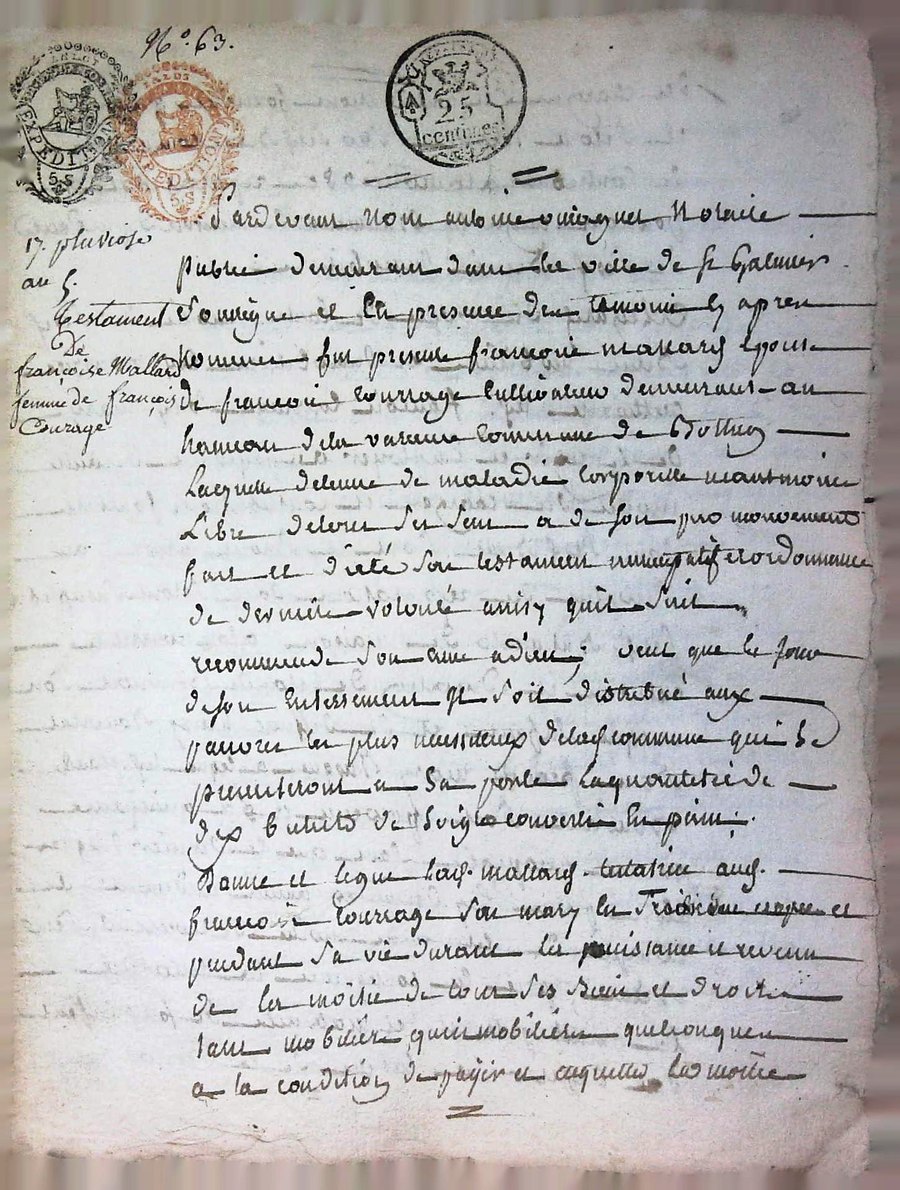 N.o 63.
EXPEDITION
5.S
EXPEDITION
5.S
25
centimes
17. pluviose
an 5.
Testament
De
françoise Mallard
femme de françois
Courage
Pardevant Notaire
public demeurant dans la ville de St Galmier
Soussigné et En presence des temoins cy apres
Nommes fut presente françoise mallard Epouse
De francois Courrage Cultivateur demeurant au
hameau de la varenne Commune de
Laquelle detenue de maladie Corporelle neantmoins
Libre de tous ses sens a de son pro mouvement
fait et dicté son testament nuncupatif et ordonnance
de derniere volonté ainsy qu'il suit
recommende son ame a dieu; veut que le jour
de son Enterrement Il soit distribué aux
pauvres les plus necessiteux de lad commune qui se
presenteront a sa porte la quantité de
dix de Seigle converti En pain.
Donne et legue lad. mallard testatrice aud.
francois Courrage son mary
pendant sa vie durant les jouissance et revenu
de la moitié de tous ses Biens et droits
tant mobiliers qu'immobiliers quelconques
a la condition de payer et acquitter la moitié